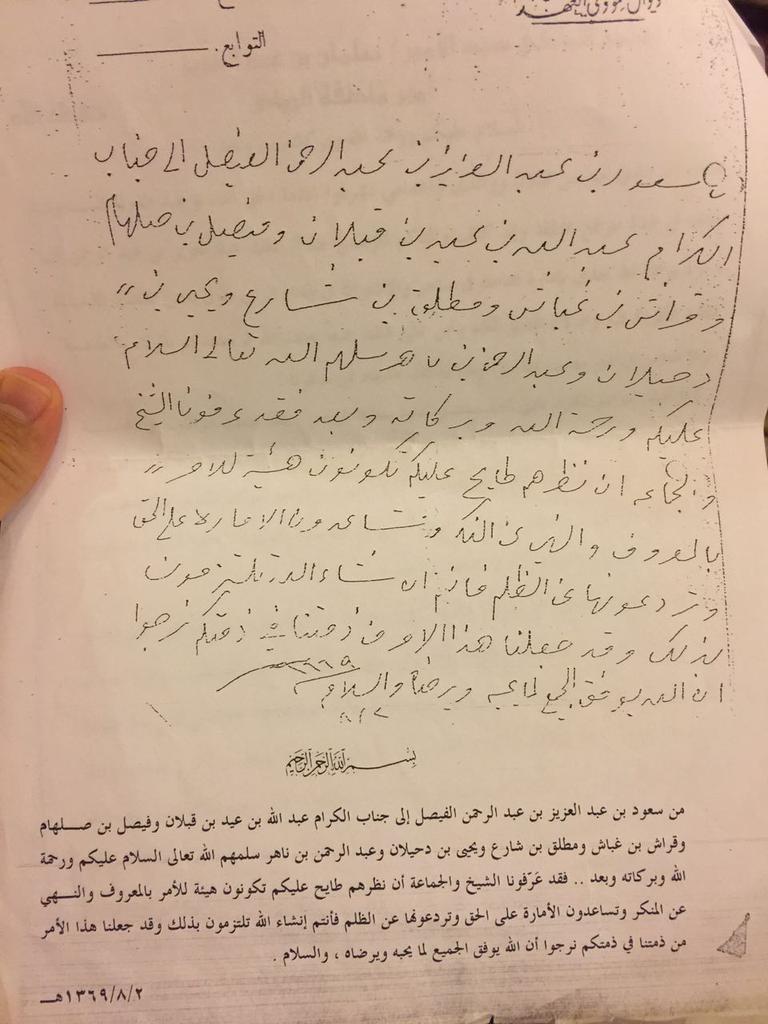 ديوان سمو ولي العهد
التوابع.
من سعود بن عبد العزيز بن عبد الرحمن الفيصل الى جناب
الكرام عبد الله بن عيد بن قبلان وفيصل بن صلهام
وقراش بن غباش ومطلق بن شارع ويحيى بن
دحيلان وعبد الرحمن بن ناهر سلمهم الله تعالى السلام
عليكم ورحمة الله وبركاته وبعد فقد عرفونا الشيخ
والجماعه ان نظرهم طايح عليكم تكونون هيئة للامر
بالمعروف والنهي عن المنكر وتساعدون الاماره على الحق
وتردعونها عن الظلم فانتم ان شاء الله تلتزمون
بذلك وقد جعلنا هذا الامر من ذمتنا في ذمتكم نرجوا
ان الله يوفق الجميع لما يحبه ويرضاه والسلام
بسم الله الرحمن الرحيم
من سعود بن عبد العزيز بن عبد الرحمن الفيصل إلى جناب الكرام عبد الله بن عيد بن قبلان وفيصل بن صلهام
وقراش بن غباش ومطلق بن شارع ويحيى بن دحيلان وعبد الرحمن بن ناهر سلمهم الله تعالى السلام عليكم ورحمة
الله وبركاته وبعد .. فقد عَرّفونا الشيخ والجماعة أن نظرهم طايح عليكم تكونون هيئة للأمر بالمعروف والنهي
عن المنكر وتساعدون الأمارة على الحق وتردعونها عن الظلم فأنتم إنشاء الله تلتزمون بذلك وقد جعلنا هذا الأمر
من ذمتنا في ذمتكم نرجوا أن الله يوفق الجميع لما يحبه ويرضاه ، والسلام .
١٣٦٩/٨/٢هـ